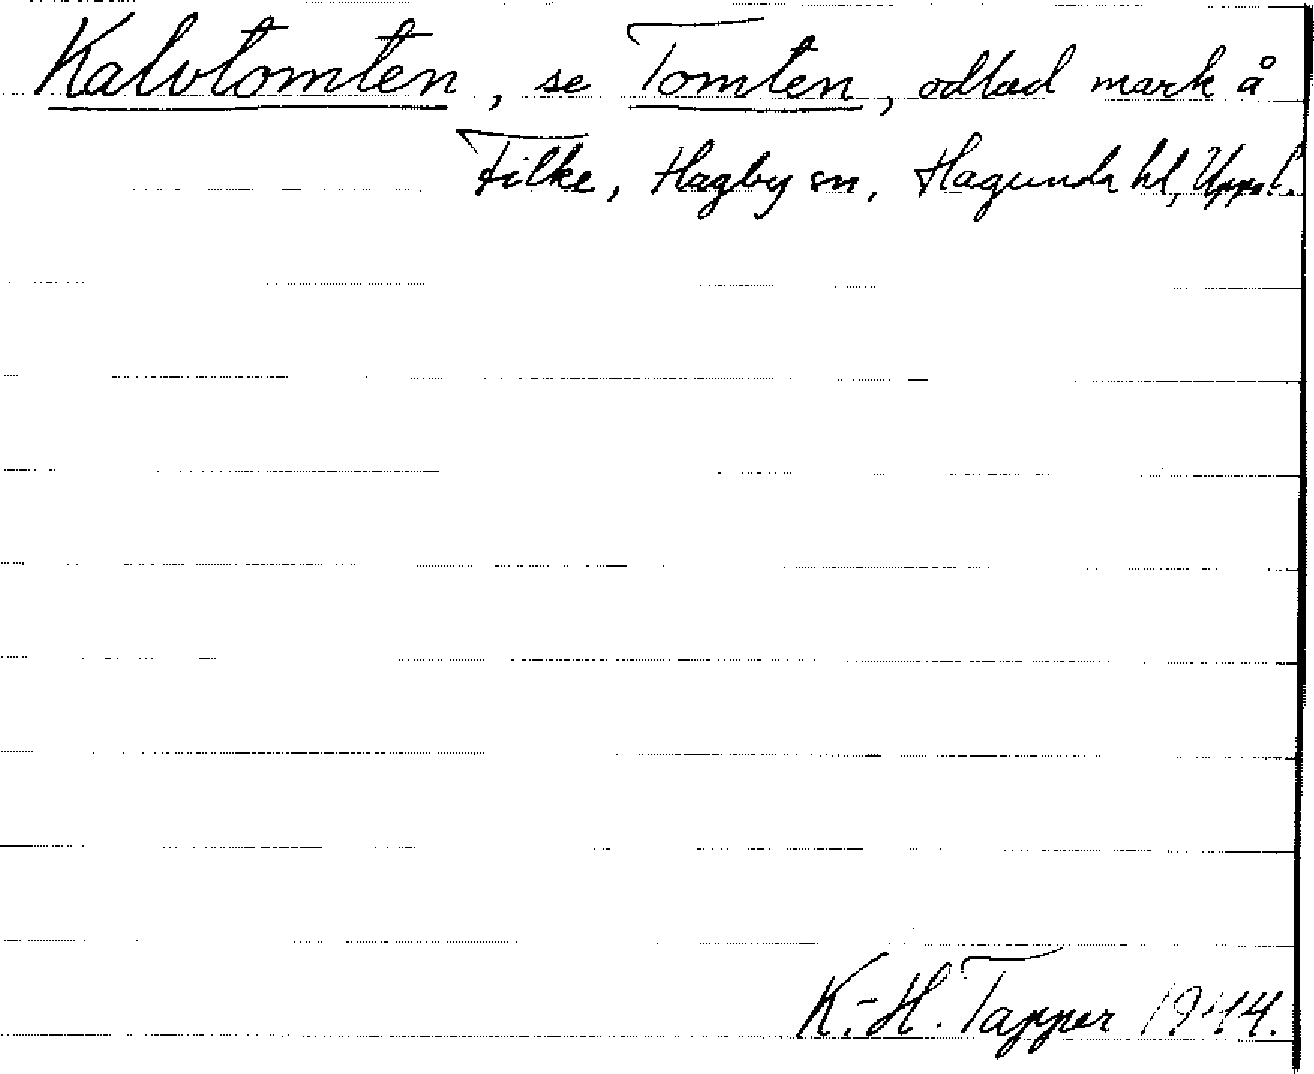 Kalvtomten, se Tomten, odlad mark å
Filke, Hagby sn, Hagunda hd, Uppl.
K.-H. Tapper 1944.